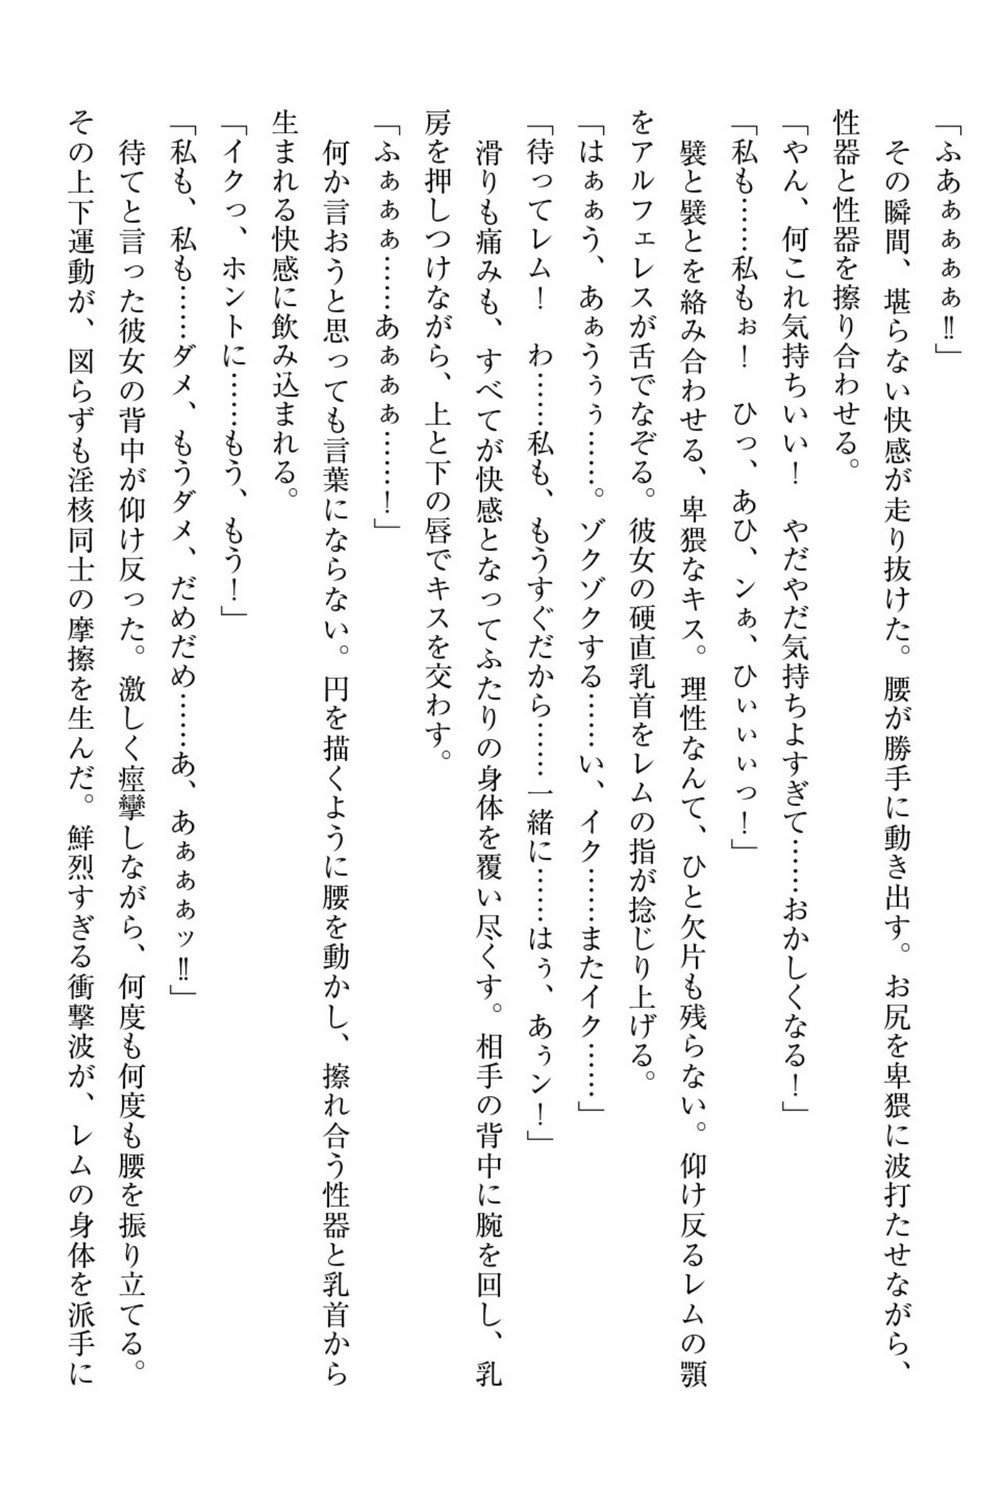 「ふあぁぁぁぁ‼」
その瞬間、堪らない快感が走り抜けた。腰が勝手に動き出す。お尻を卑猥に波打たせながら、
性器と性器を擦り合わせる。
「やん、何これ気持ちいい！　やだやだ気持ちよすぎて……おかしくなる！」
「私も……私もぉ！　ひっ、あひ、ンぁ、ひぃぃぃっ！」
襞と襞とを絡み合わせる、卑猥なキス。理性なんて、ひと欠片も残らない。仰け反るレムの顎
をアルフェレスが舌でなぞる。彼女の硬直乳首をレムの指が捻じり上げる。
「はぁぁう、あぁうぅぅ……。ゾクゾクする……い、イク……またイク……」
「待ってレム！　わ……私も、もうすぐだから……一緒に……はぅ、あぅン！」
滑りも痛みも、すべてが快感となってふたりの身体を覆い尽くす。相手の背中に腕を回し、乳
房を押しつけながら、上と下の唇でキスを交わす。
「ふぁぁぁ……あぁぁぁ……！」
何か言おうと思っても言葉にならない。円を描くように腰を動かし、擦れ合う性器と乳首から
生まれる快感に飲み込まれる。
「イクっ、ホントに……もう、もう！」
「私も、私も……ダメ、もうダメ、だめだめ……あ、あぁぁぁッ‼」
待てと言った彼女の背中が仰け反った。激しく痙攣しながら、何度も何度も腰を振り立てる。
その上下運動が、図らずも淫核同士の摩擦を生んだ。鮮烈すぎる衝撃波が、レムの身体を派手に